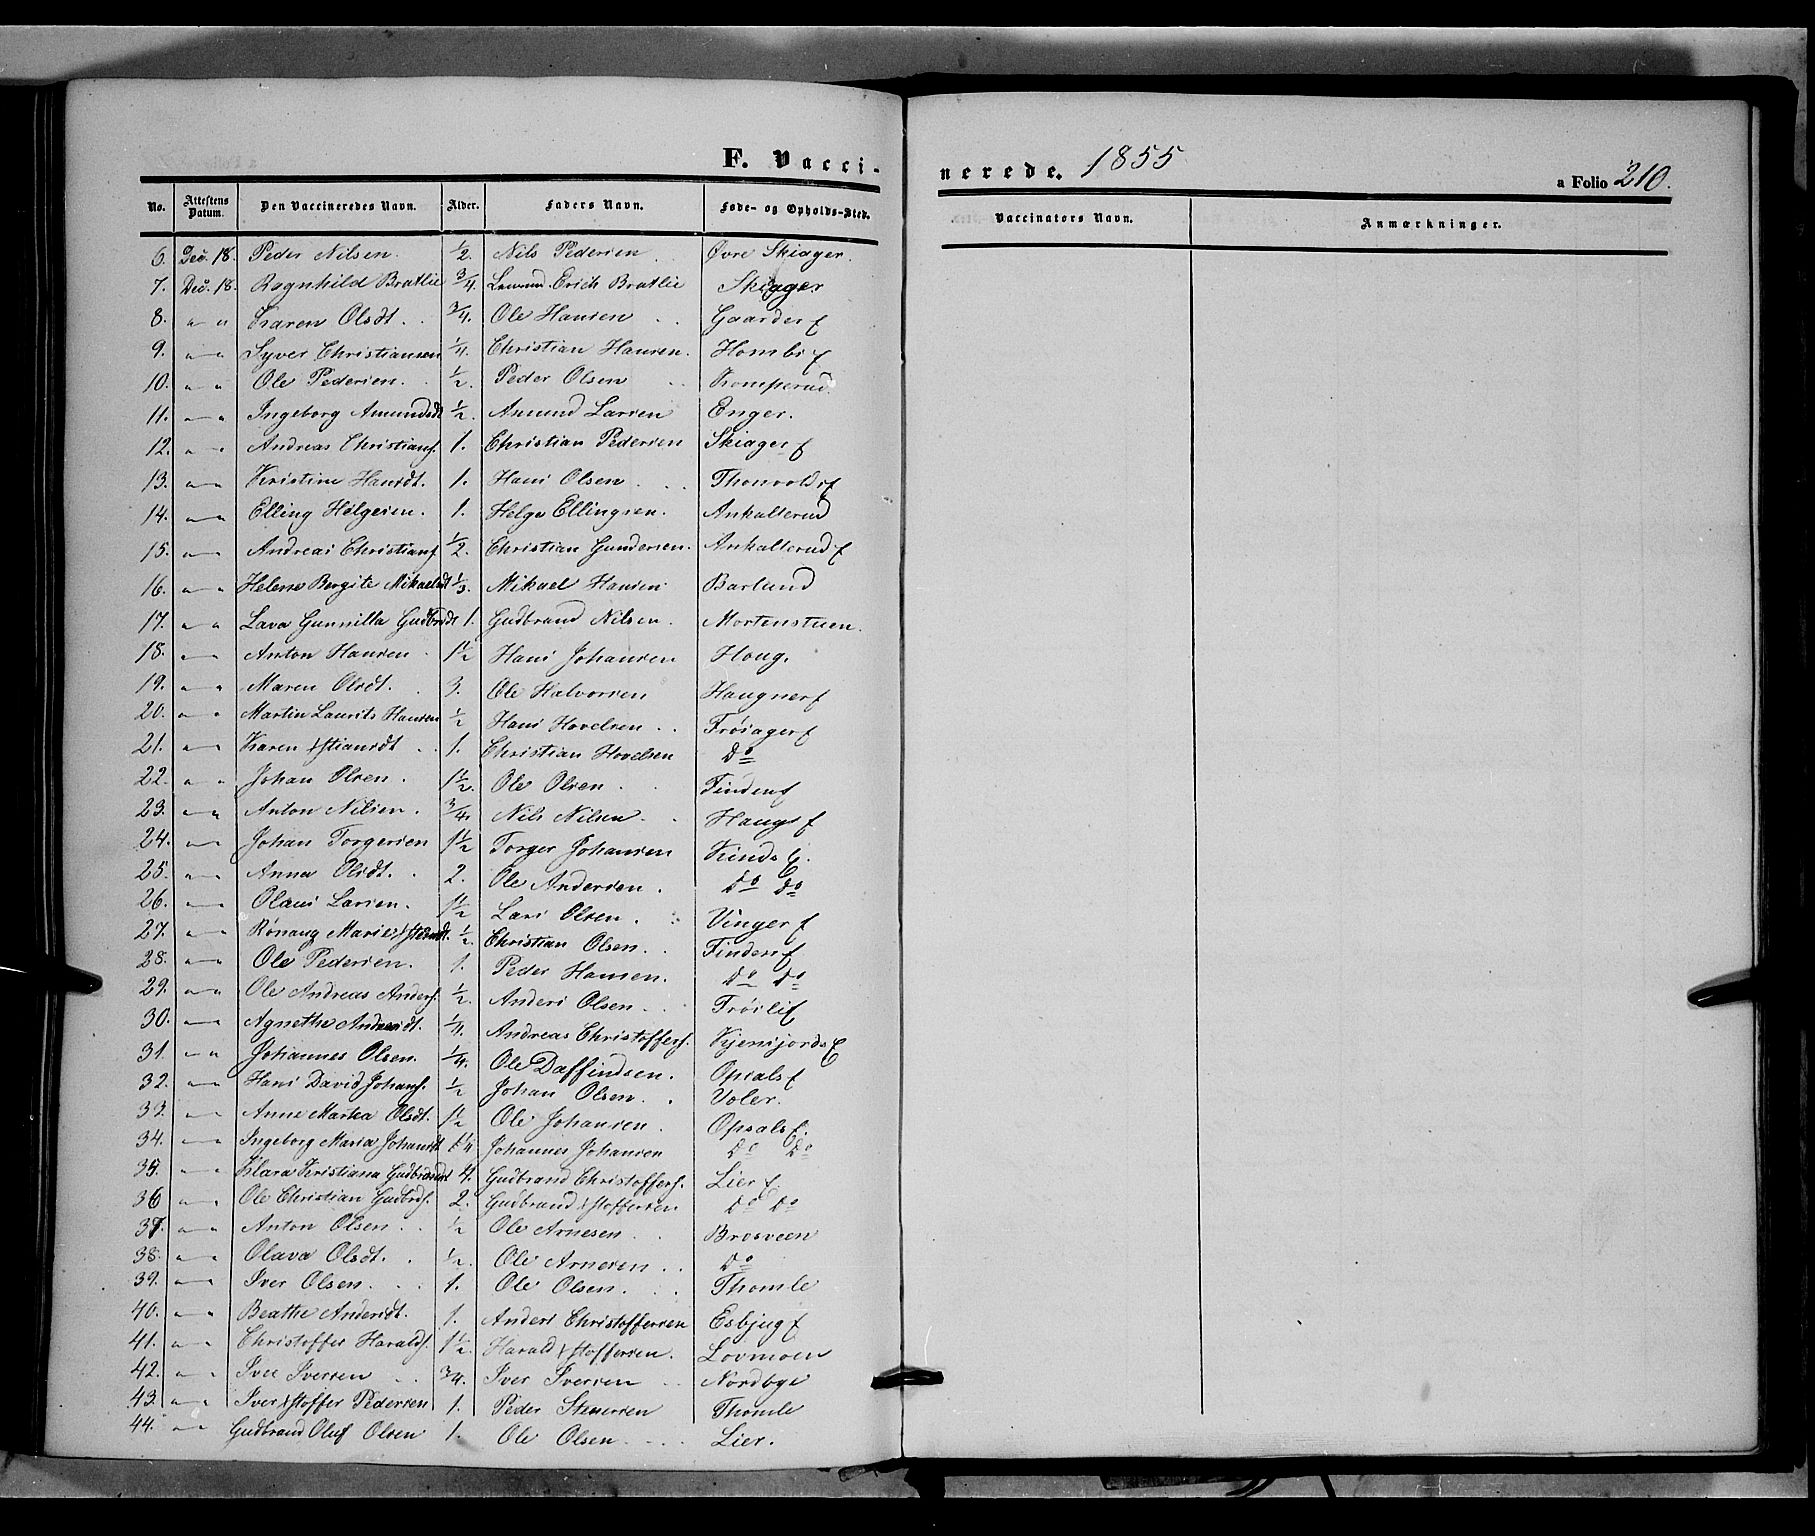 F. Vacci-
nerede. 1855
a Folio 210.
No. Attestens Datum. Den Vaccineredes Navn. Alder. Faders Navn. Føde- og Opholds-Sted.
Vaccinators Navn. Anmærkninger.
6. Dec. 18. Peder Nilsen. 1/2. Nils Pedersen Øvre Skiager.
7. Dec. 18. Ragnhild Bratlie 3/4. Erich Bratlie Skiager
8. " " Karen Olsdt. 3/4. Ole Hansen Gaarder f
9. " " Syver Christiansen 1/4. Christian Hansen. Hombs f
10. " " Ole Pedersen. 1/2. Peder Olsen Komperud.
11. " " Ingeborg Amundsdt 1/2. Amund Larsen Enger.
12. " " Andreas Christians. 1. Christian Pedersen Skiager f
13. " " Kristine Hansdt. 1. Hans Olsen Thonvolds f
14. " " Elling Helgesen. 1. Helge Ellingsen. Ankalterud
15. " " Andreas Christians 1/2. Christian Gundersen. Ankalterud f
16. " " Helene Bergite Mikaelsdt 1/3. Mikael Hansen Barlund
17. " " Lava Gunnilla Gudbrdt 1. Gudbrand Nilsen. Mortenstuen.
18. " " Anton Hansen 1 1/2 Hans Johansen Houg.
19. " " Maren Olsdt. 3. Ole Halvorsen Haugner f
20. " " Martin Laurits Hansen 1/2 Hans Hovelsen Frøsager f
21. " " Karen Xstiansdt 1. Christian Hovelsen Do
22. " " Johan Olsen. 1 1/2. Ole Olsen Finden f
23. " " Anton Nilsen. 3/4. Nils Nilsen Haugs f
24. " " Johan Torgersen 1 1/2 Torger Johansen Kinds E.
25. " " Anna Olsdt. 2. Ole Andersen. Do Do
26. " " Olaus Larsen. 1 1/2 Lars Olsen Vinger f
27. " " Rønnaug Marie Xstensdt. 1/2. Christian Olsen. Finden f
28. " " Ole Pedersen. 1. Peder Hansen. Do Do
29. " " Ole Andreas Anders. 1/2. Anders Olsen Frøsli f
30. " " Agnethe Andersdt. 1/4. Andreas Christoffers. Kjensjords E
31. " " Johannes Olsen. 1/4. Ole Daffindsen. Opsals f
32. " " Hans David Johans. 1/2 Johan Olsen Voler.
33. " " Anne Marthea Olsdt. 1 1/2 Ole Johansen. Opsals f.
34. " " Ingeborg Maria Johansdt 1 1/4 Johannes Johansen Do Do
35. " " Klara Kristiana Gudbrandsdt 4. Gudbrand Christoffers. Lier f
36 " " Ole Christian Gudbrds. 2. Gudbrand Xstoffersen Do Do
37. " " Anton Olsen 1/2 Ole Arnesen Brosveen
38. " " Olava Olsdt. 1/2. Ole Arnesen Do
39. " " Iver Olsen. 1. Ole Olsen. Thomle
40. " " Beathe Andersdt. 1. Anders Christoffersen Esbjug f
41. " " Christoffer Haralds. 1 1/2. Harald Xstoffersen. Lovmoen
42. " " Iver Iversen 3/4. Iver Iversen Nordbye
43. " " Iver Xstoffer Pedersen 1. Peder Stenersen Thomle
44. " " Gudbrand Oluf Olsen 1. Ole Olsen Lier.